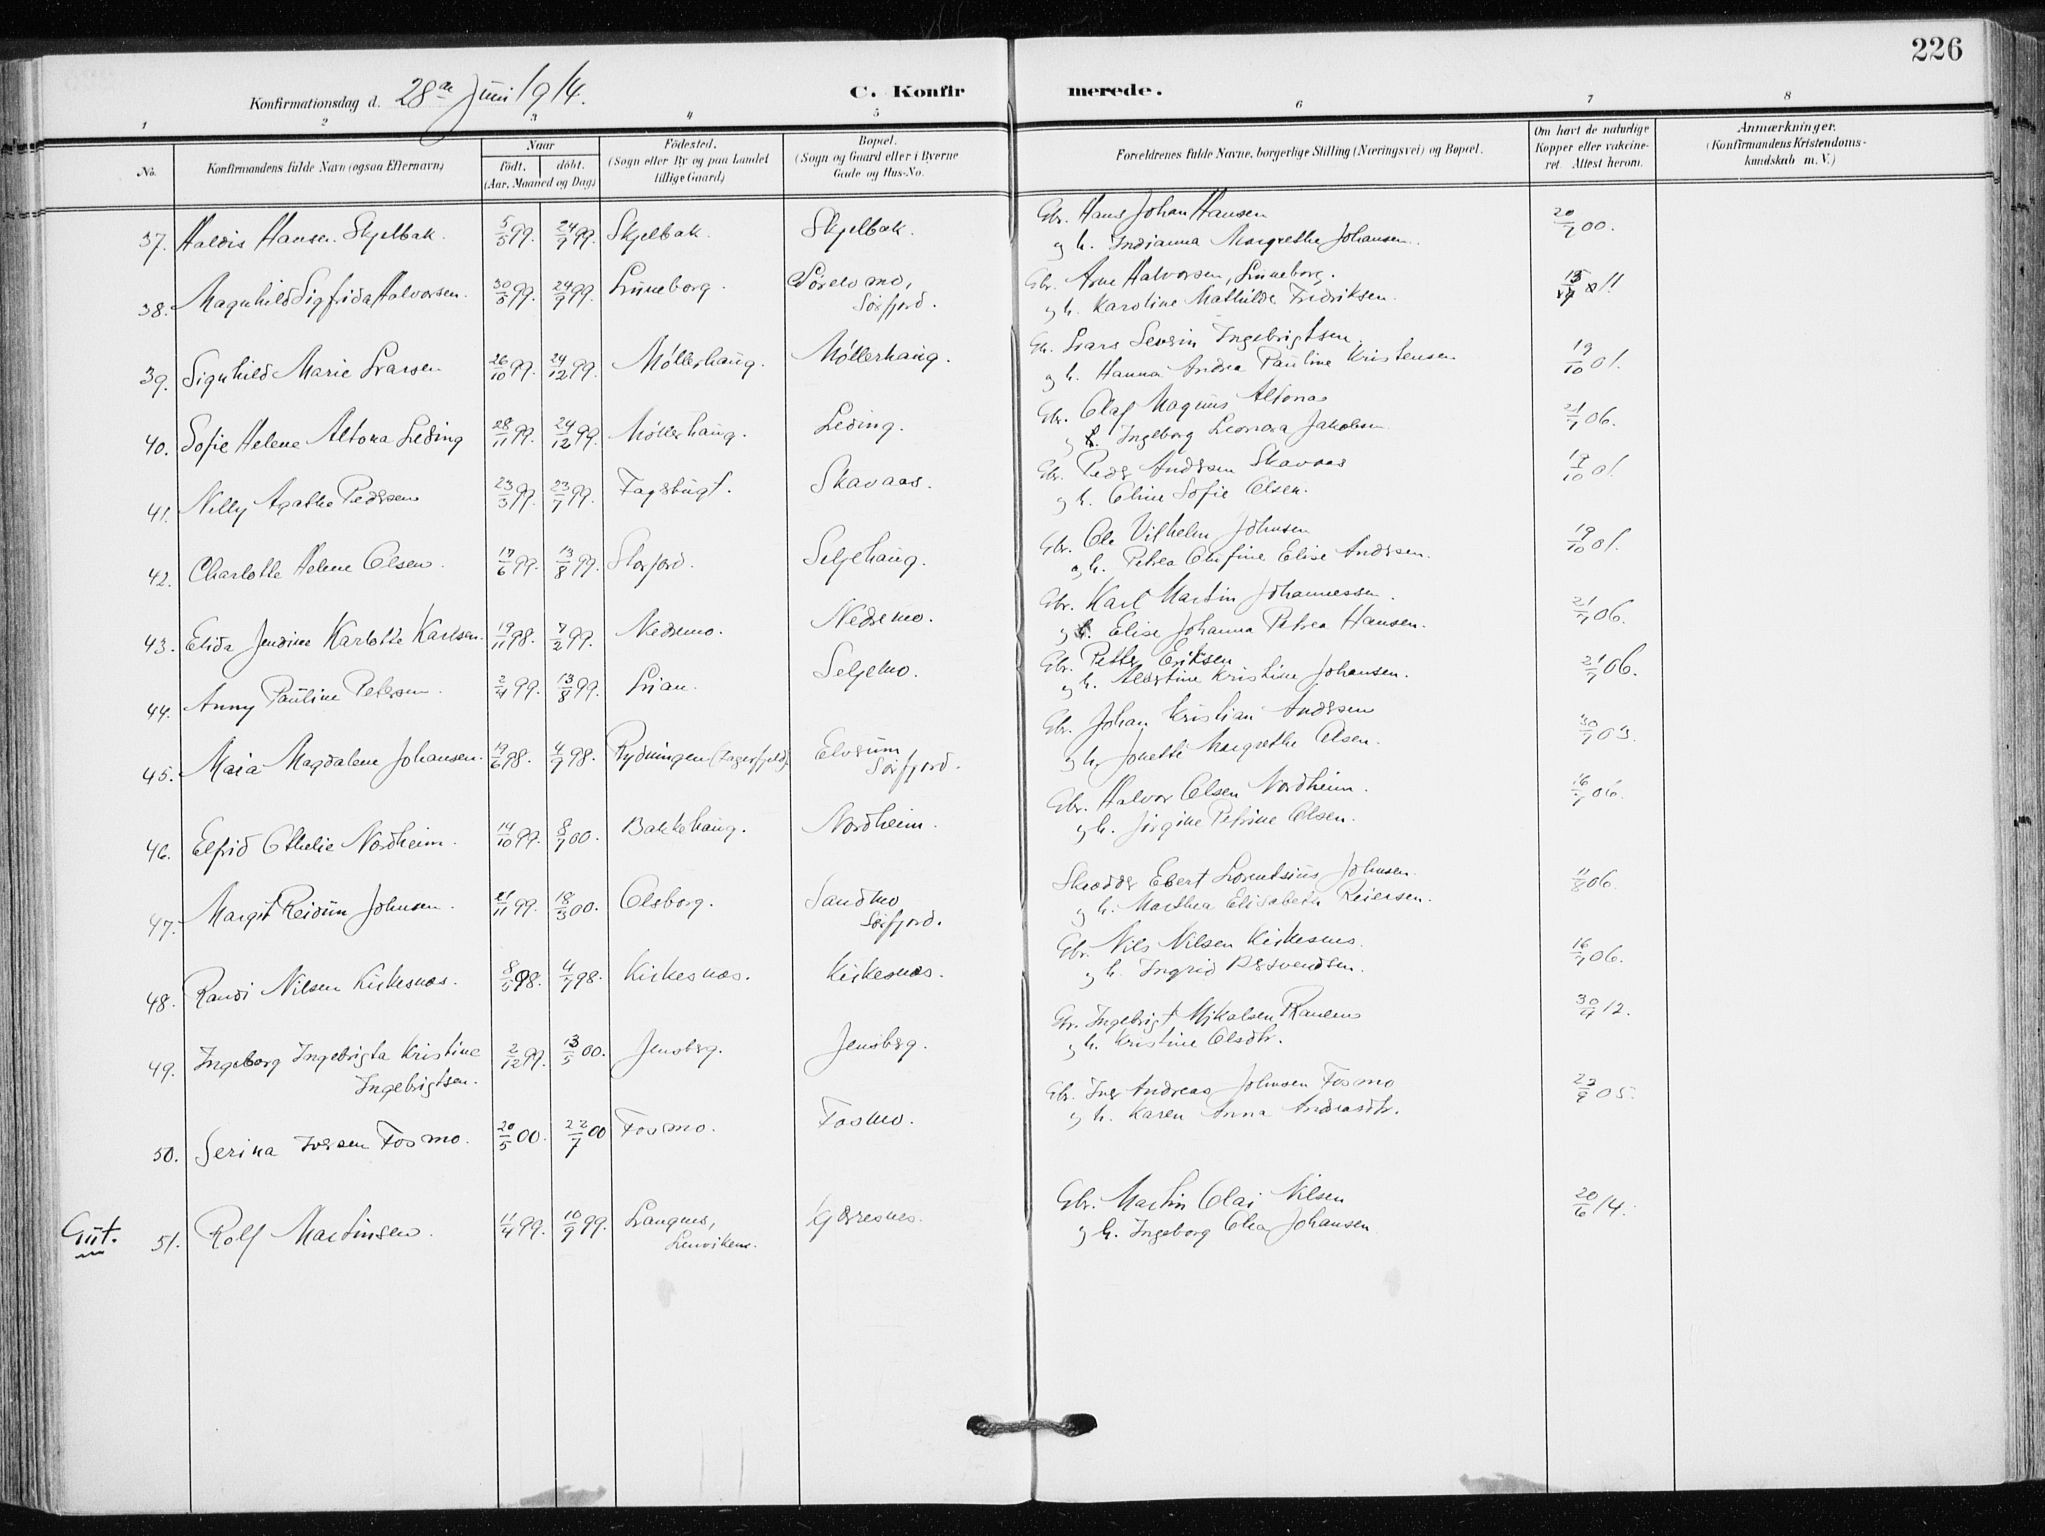 226
Konfirmationsdag d. 28de Juni 1914.
C. Konfirmerede.
1 2 3 4 5 6 7 8
No. Konfirmandens fulde Navn (ogsaa Efternavn) Naar født. døbt. (Aar, Maaned og Dag) Fødested. (Sogn eller By og paa Landet tillige Gaard) Bopæl. (Sogn og Gaard eller i Byerne Gade og Hus-No. Forældrenes fulde Navne, borgerlige Stilling (Næringsvei) og Bopæl. Om havt de naturlige Kopper eller vakcineret. Attest herom. Anmærkninger. (Konfirmandens Kristendomskundskab m. V.)
37. Haldis Hansen Skjelbak. 5/5 99. 24/9 99. Skjelbak. Skjelbak. Gbr. Hans Johan Hansen 20/7 00.
og h. Indianna Margrethe Johansen.
38. Magnhild Sigfrida Halvorsen. 30/5 99. 24/9 99. Lüneborg. Søremo, Gbr. Arne Halvorsen, Lüneborg. 11
Sørfjord. og h. Karoline Mathilde Fredriksen.
39. Signhild Marie Larsen 26/10 99. 24/12 99. Møllerhaug. Møllerhaug. Gbr. Lars Sevrin Ingebrigtsen, 19/10 01.
og h. Hanna Andrea Pauline Kristensen
40. Sofie Helene Altona Leding 28/11 99. 24/12 99. Møllerhaug. Leding. Gbr. Olaf Magnus Altonas 21/7 06.
og h. Ingeborg Leonora Jakobsen
41. Nelly Agathe Pedersen 23/3 99. 23/7 99. Fagerbugt. Skavaas. Gbr. Peder Andersen Skavaas 19/10 01.
og h. Oline Sofie Olsen.
42. Charlotte Helene Olsen. 17/6 99. 13/8 99. Storjord. Seljehaug. Gbr. Ole Vilhelm Johnsen 19/10 01.
og h. Petrea Olufine Elise Andersen.
43. Elida Jendine Karlotte Karlsen. 19/11 98. 7/2 99. Nedremo. Nedremo. Gbr. Karl Martin Johannessen. 21/7 06.
og h. Elise Johanna Petrea Hansen.
44. Anny Pauline Petersen. 2/4 99. 13/8 99. Lian. Seljemo. Gbr. Petter Eriksen 21/7 06.
og h. Albertine Kristine Johansen.
45. Maia Magdalene Johansen. 19/6 98. 4/9 98. Rydningen (Ingersfjeld) Elvrum Gbr. Johan Kristian Andersen 30/7 03.
Sørfjord. og h. Jonette Margrethe Olsen.
46. Elfrid Othelie Nordheim. 14/10 99. 8/7 00. Bakkehaug. Nordheim. Gbr. Halvor Olsen Nordheim. 16/7 06.
og h. Jørgine Petrine Olsen.
47. Margit Reidun Johnsen. 21/11 99. 18/3 00. Olsborg. Sandmo Skrædder Ebert Lorentsius Johnsen. 11/8 06.
Sørfjord. og h. Marthea Elisabeth Reiersen.
48. Randi Nilsen Kirkesnæs. 8/5 98. 4/7 98. Kirkesnæs. Kirkesnæs. Gbr. Nils Nilsen Kirkesnes. 16/7 06.
og h. Ingrid Bersvendsen.
49. Ingeborg Ingebrigta Kristine 2/12 99. 13/5 00. Jensberg. Jensberg. Gbr. Ingebrigt Mikalsen Ranems 30/4 12.
Ingebrigtsen. og h. Kristine Olsdtr.
50. Serina Iversen Fosmo. 20/5 00. 22/7 00 Fosmo. Fosmo. Gbr. Iver Andreas Johnsen Fosmo 23/9 05.
og h. Karen Anna Andreasdtr.
Gut. 51. Rolf Martinsen. 11/4 99. 10/9 99. Langnes, Kjerresnes. Gbr. Martin Olai Nilsen 20/6 14.
Lenviken. og h. Ingeborg Olea Johansen